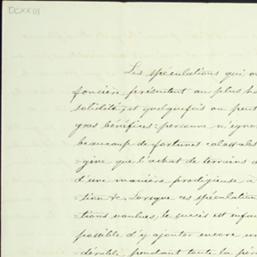 DCXXIII
Les spéculations qui o
foncière présentent au plus ha
solidité, et quelquefois on peut
gros bénéfices: personne n'ignore
beaucoup de fortunes colossales
gine que l'achat de terrains d
d'une manière prodigieuse à
tion &. Lorsque ces spéculation
tions voulues, le succès est infail
possible d'y ajouter encore un
pendant toute la pér